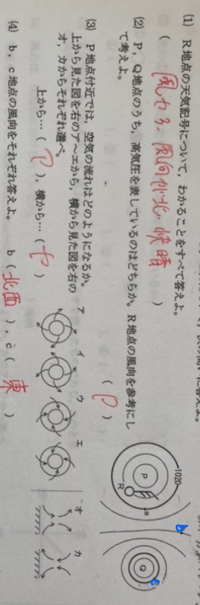 (1) R地点の天気記号について，わかることをすべて答えよ。
( 風力3，風向北，快晴 )
(2) P，Q地点のうち，高気圧を表しているのはどちらか。R地点の風向を参考にし
て考えよ。
( P )
(3) P地点付近では，空気の流れはどのようになるか。
上から見た図を右のア～エから，横から見た図を右の
オ，カからそれぞれ選べ。
上から…( ), 横から…( )
(4) b，c地点の風向をそれぞれ答えよ。
b ( 北西 ), c ( 東 )
ア イ ウ エ
オ カ
1020
P
R
a
b
Q
c